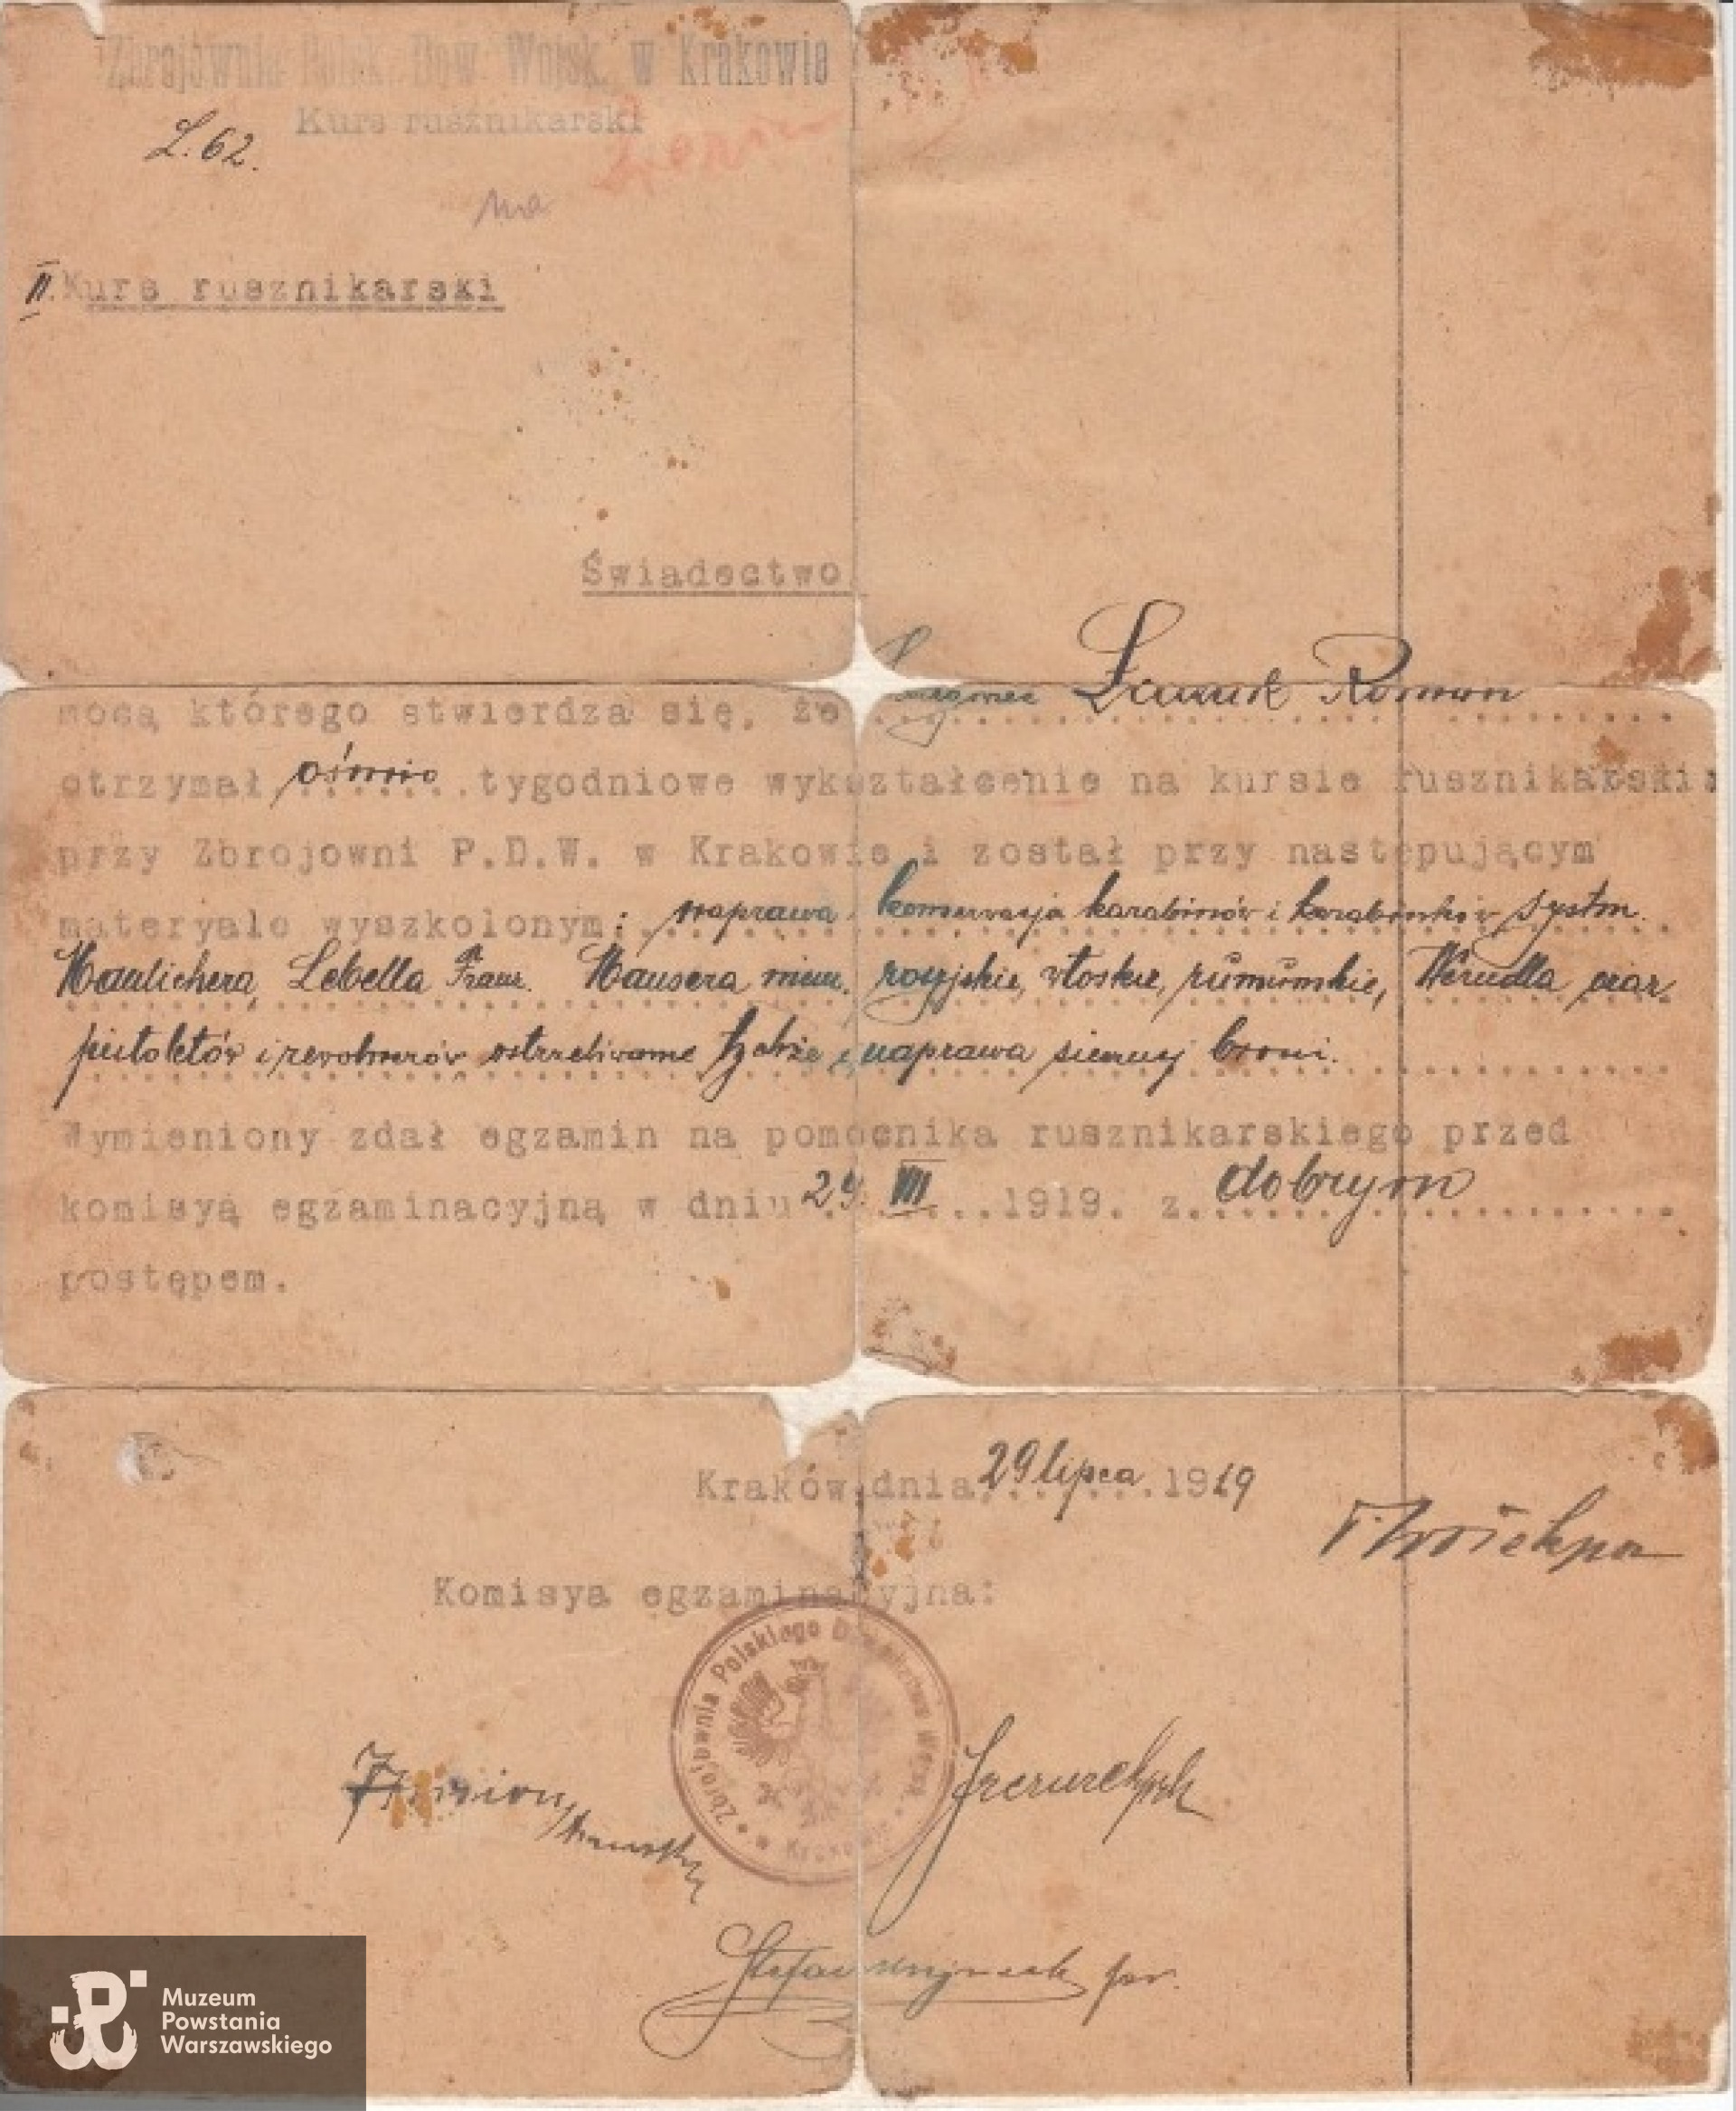 Zbrojownia Polsk. Dow. Wojsk. w Krakowie
Kurs rusznikarski
L. 62.
II. Kurs rusznikarski
Świadectwo
mocą którego stwierdza się, że Roman
otrzymał ośmio tygodniowe wykształcenie na kursie rusznikarski
przy Zbrojowni P.D.W. w Krakowie i został przy następującym
materyale wyszkolonym: naprawa konserwacja karabinów i karabinków system.
Manlichera, Lebella Franc. Mausera niem., rosyjskie, włoskie, rumuńskie, Werndla
pistoletów i rewolwerów ostrzeliwanie tychże i naprawa siecznej broni.
Wymieniony zdał egzamin na pomocnika rusznikarskiego przed
komisyą egzaminacyjną w dniu 29. VII 1919. z dobrym
postępem.
Kraków, dnia 29 lipca 1919
Komisya egzaminacyjna:
Zbrojownia Polskiego Dowództwa Wojsk w Krakowie
Muzeum
Powstania
Warszawskiego